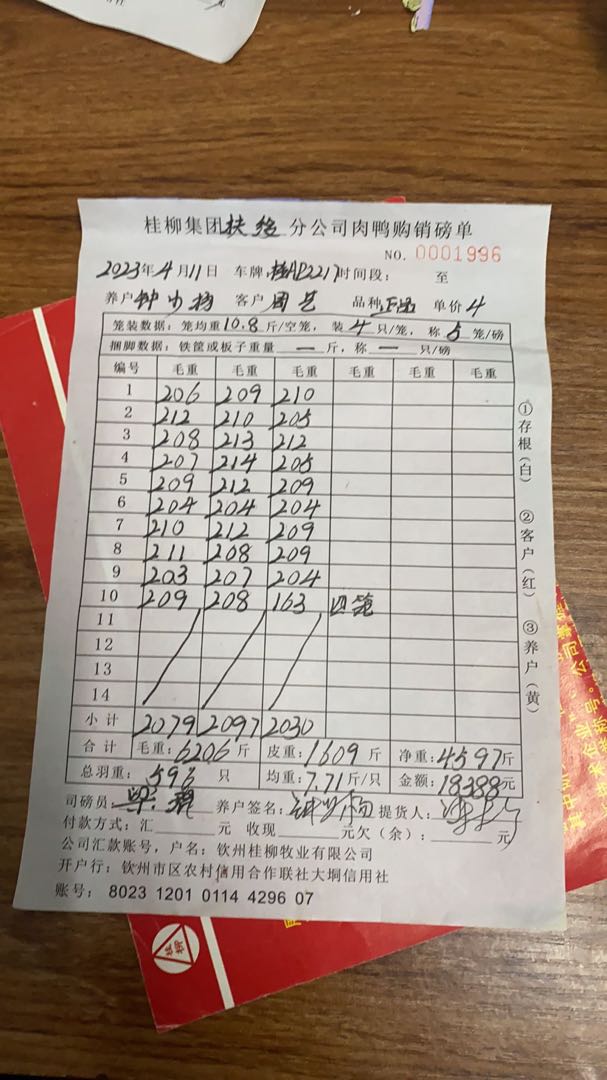 桂柳集团扶绥分公司肉鸭购销磅单
NO. 0001996
2023年4月11日 车牌:桂AP2217 时间段: 至
养户 钟 客户 周艺 品种 正品 单价 4
笼装数据:笼均重10.8斤/空笼,装4只/笼,称5笼/磅
捆脚数据:铁筐或板子重量一斤,称一只/磅
编号 毛重 毛重 毛重 毛重 毛重 毛重
1 206 209 210
2 212 210 205
3 208 213 212
4 207 214 205
5 209 212 209
6 204 204 204
7 210 212 209
8 211 208 209
9 203 207 204
10 209 208 163 四笼
11
12
13
14
小计 2079 2097 2030
合计 毛重:6206斤 皮重:1609斤 净重:4597斤
总羽重:596只 均重:7.71斤/只 金额:18388元
司磅员: 养户签名: 提货人:
付款方式:汇 元 收现 元欠(余): 元
公司汇款账号,户名:钦州桂柳牧业有限公司
开户行:钦州市区农村信用合作联社大垌信用社
账号: 8023 1201 0114 4296 07
①存根(白)
②客户(红)
③养户(黄)